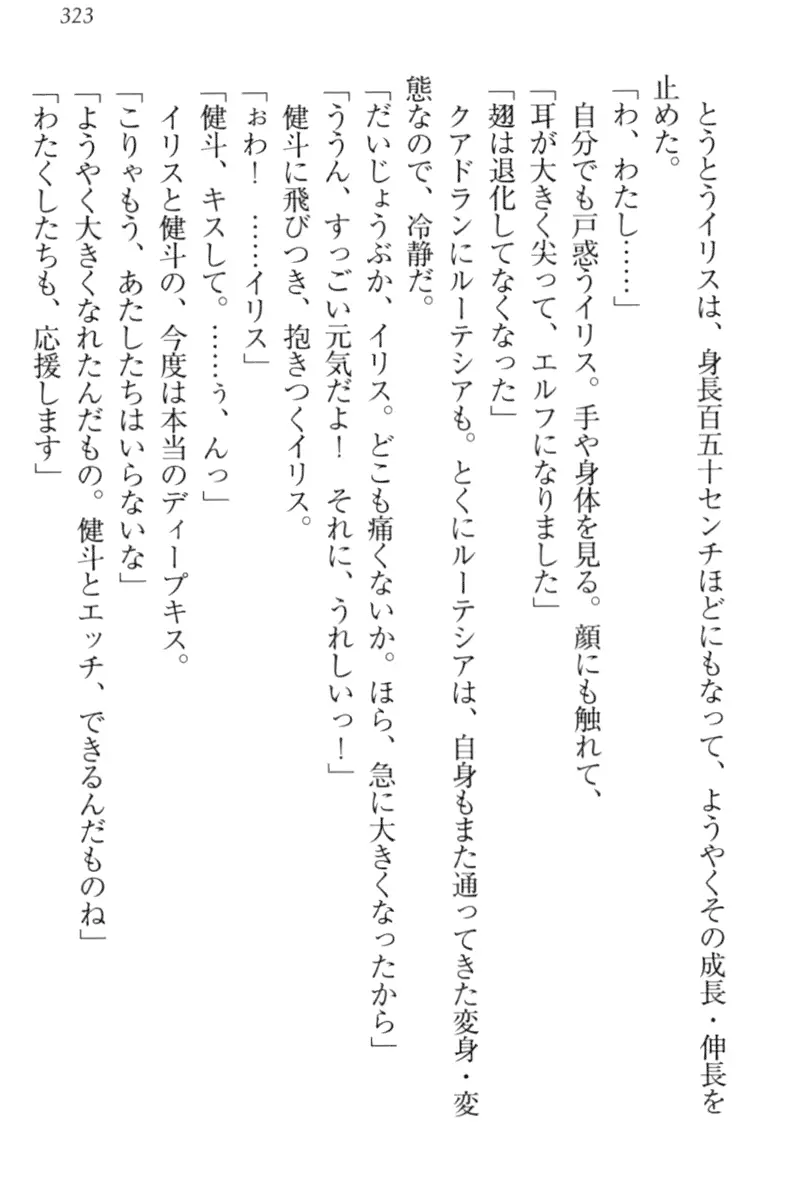 323
とうとうイリスは、身長百五十センチほどにもなって、ようやくその成長・伸長を
止めた。
「わ、わたし……」
自分でも戸惑うイリス。手や身体を見る。顔にも触れて、
「耳が大きく尖って、エルフになりました」
「翅は退化してなくなった」
クアドランにルーテシアも。とくにルーテシアは、自身もまた通ってきた変身・変
態なので、冷静だ。
「だいじょうぶか、イリス。どこも痛くないか。ほら、急に大きくなったから」
「ううん、すっごい元気だよ！　それに、うれしいっ！」
健斗に飛びつき、抱きつくイリス。
「ぉわ！　……イリス」
「健斗、キスして。……ぅ、んっ」
イリスと健斗の、今度は本当のディープキス。
「こりゃもう、あたしたちはいらないな」
「ようやく大きくなれたんだもの。健斗とエッチ、できるんだものね」
「わたくしたちも、応援します」